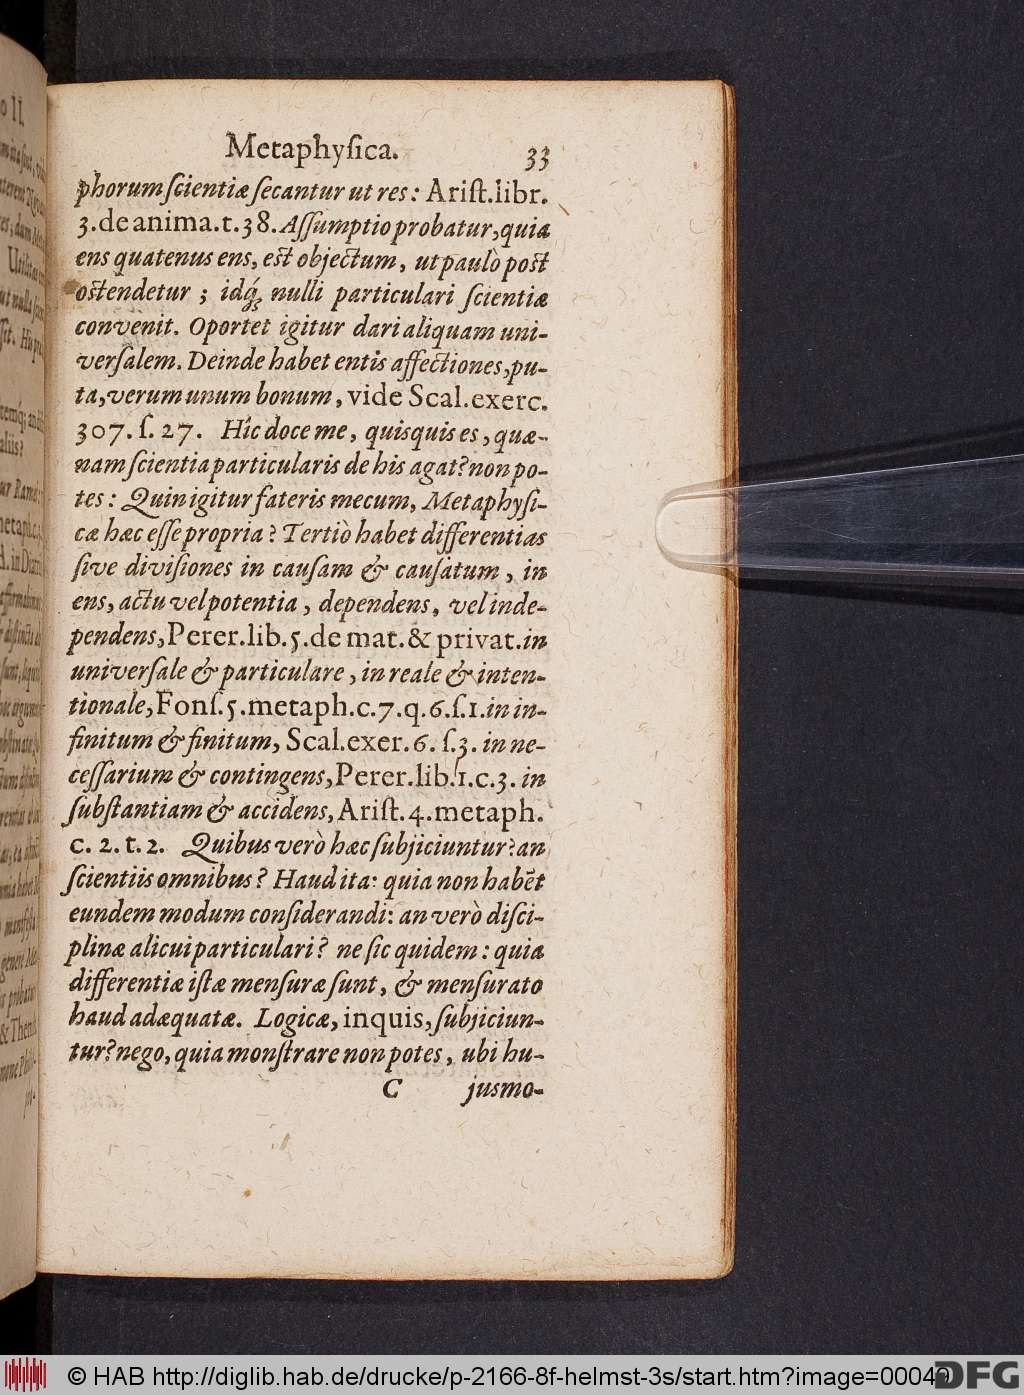 Metaphyſica. 33
phorum ſcientiæ ſecantur ut res: Ariſt. libr.
3. de anima. t. 38. Aſſumptio probatur, quia
ens quatenus ens, est objectum, ut paulò post
ostendetur; idq́; nulli particulari ſcientiæ
convenit. Oportet igitur dari aliquam uni-
verſalem. Deinde habet entis affectiones, pu-
ta, verum unum bonum, vide Scal. exerc.
307. ſ. 27. Hîc doce me, quisquis es, quæ-
nam ſcientia particularis de his agat? non po-
tes: Quin igitur fateris mecum, Metaphyſi-
cæ hæc eſſe propria? Tertiò habet differentias
ſive diviſiones in cauſam & cauſatum, in
ens, actu vel potentia, dependens, vel inde-
pendens, Perer. lib. 5. de mat. & privat. in
univerſale & particulare, in reale & inten-
tionale, Fonſ. 5. metaph. c. 7. q. 6. ſ. 1. in in-
finitum & finitum, Scal. exer. 6. ſ. 3. in ne-
ceſſarium & contingens, Perer. lib. 1. c. 3. in
ſubſtantiam & accidens, Ariſt. 4. metaph.
c. 2. t. 2. Quibus verò hæc ſubjiciuntur? an
ſcientiis omnibus? Haud ita: quia non habẽt
eundem modum conſiderandi: an verò diſci-
plinæ alicui particulari? ne ſic quidem: quia
differentiæ iſtæ menſuræ ſunt, & menſurato
haud adæquatæ. Logicæ, inquis, ſubjiciun-
tur? nego, quia monſtrare non potes, ubi hu-
C jusmo-
© HAB http://diglib.hab.de/drucke/p-2166-8f-helmst-3s/start.htm?image=00049
DFG